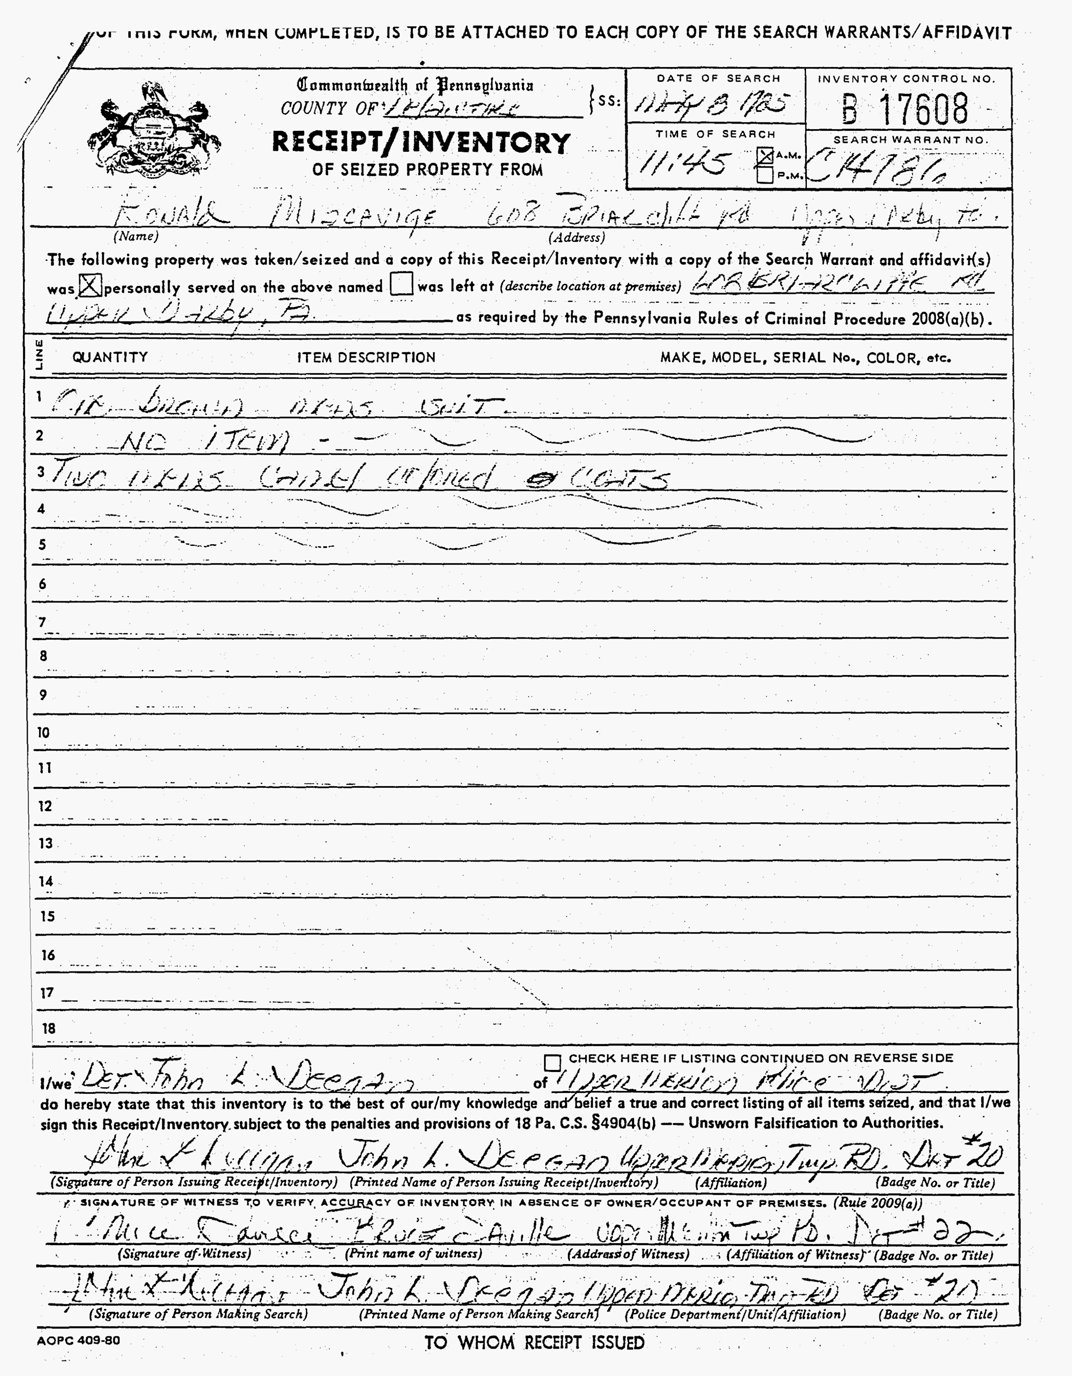 OF THIS FORM, WHEN COMPLETED, IS TO BE ATTACHED TO EACH COPY OF THE SEARCH WARRANTS/AFFIDAVIT
Commonwealth of Pennsylvania
COUNTY OF
SS:
RECEIPT/INVENTORY
OF SEIZED PROPERTY FROM
DATE OF SEARCH
MAY 8 1985
INVENTORY CONTROL NO.
B 17608
TIME OF SEARCH
11:45 A.M. P.M.
SEARCH WARRANT NO.
C14786
Ronald Miscavige 608 Briarcliff Rd Upper Darby
(Name) (Address)
The following property was taken/seized and a copy of this Receipt/Inventory with a copy of the Search Warrant and affidavit(s)
was personally served on the above named was left at (describe location at premises) 608 BRIARCLIFFE Rd
UPPER DARBY, PA as required by the Pennsylvania Rules of Criminal Procedure 2008(a)(b).
LINE QUANTITY ITEM DESCRIPTION MAKE, MODEL, SERIAL No., COLOR, etc.
1 BROWN MENS SUIT
2 NO ITEM
3 TWO MENS CAMEL COLORED COATS
4
5
6
7
8
9
10
11
12
13
14
15
16
17
18
CHECK HERE IF LISTING CONTINUED ON REVERSE SIDE
I/we DET. John L. DEEGAN of UPPER MERION Police DEPT.
do hereby state that this inventory is to the best of our/my knowledge and belief a true and correct listing of all items seized, and that I/we
sign this Receipt/Inventory subject to the penalties and provisions of 18 Pa. C.S. §4904(b) –– Unsworn Falsification to Authorities.
John L. Deegan John L. DEEGAN UPPER MERION Twp. PD. DET #20
(Signature of Person Issuing Receipt/Inventory) (Printed Name of Person Issuing Receipt/Inventory) (Affiliation) (Badge No. or Title)
SIGNATURE OF WITNESS TO VERIFY ACCURACY OF INVENTORY IN ABSENCE OF OWNER/OCCUPANT OF PREMISES. (Rule 2009(a))
BRUCE SAVILLE Upper Merion Twp PD. DET #22
(Signature of Witness) (Print name of witness) (Address of Witness) (Affiliation of Witness) (Badge No. or Title)
John L. Deegan John L. DEEGAN UPPER MERION Twp PD DET #20
(Signature of Person Making Search) (Printed Name of Person Making Search) (Police Department/Unit/Affiliation) (Badge No. or Title)
AOPC 409-80
TO WHOM RECEIPT ISSUED